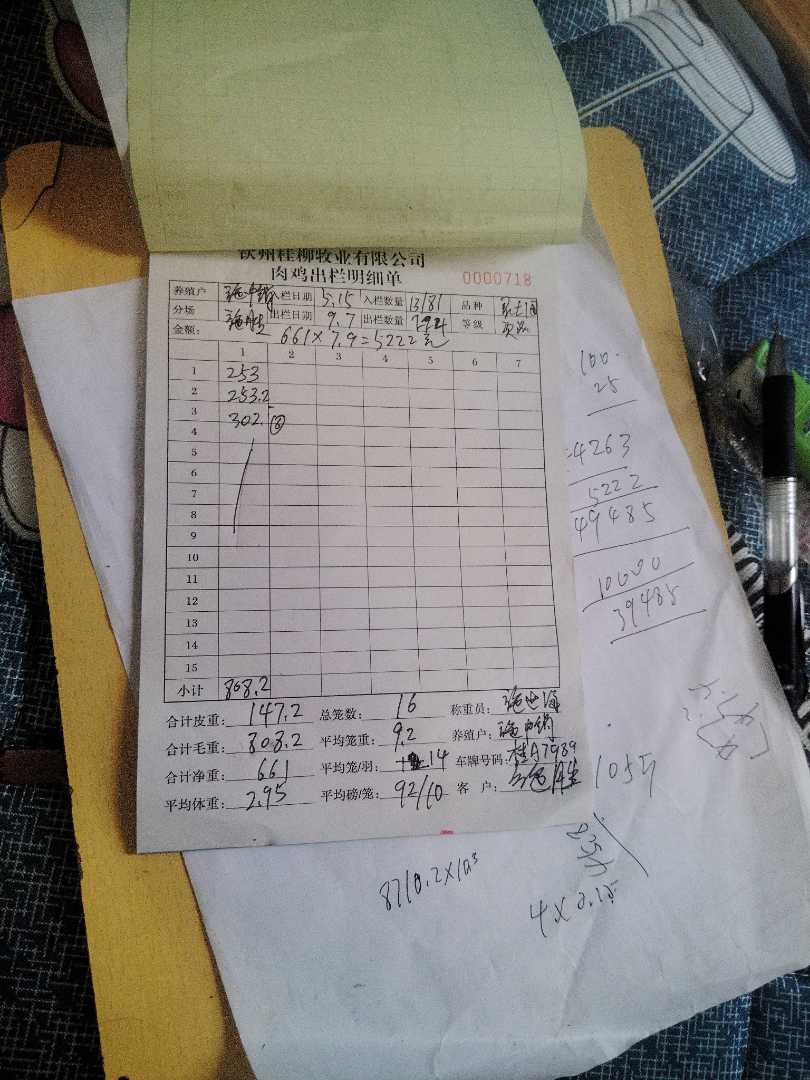 钦州桂柳牧业有限公司
肉鸡出栏明细单 0000718
养殖户 入栏日期 5.15 入栏数量 品种
分场 出栏日期 9.7 出栏数量 等级
金额: 661×7.9=5222元
1 2 3 4 5 6 7
1 253
2 253.2
3 302.
4
5
6
7
8
9
10
11
12
13
14
15
小计 808.2
合计皮重: 147.2 总笼数: 16 称重员:
合计毛重: 808.2 平均笼重: 9.2 养殖户:
合计净重: 661 平均笼/羽: 14 车牌号码: 桂A7989
平均体重: 2.95 平均磅/笼: 92/10 客 户:
100.
25
4263
5222
49485
10000
39485
105
8710.2×103
4×0.15